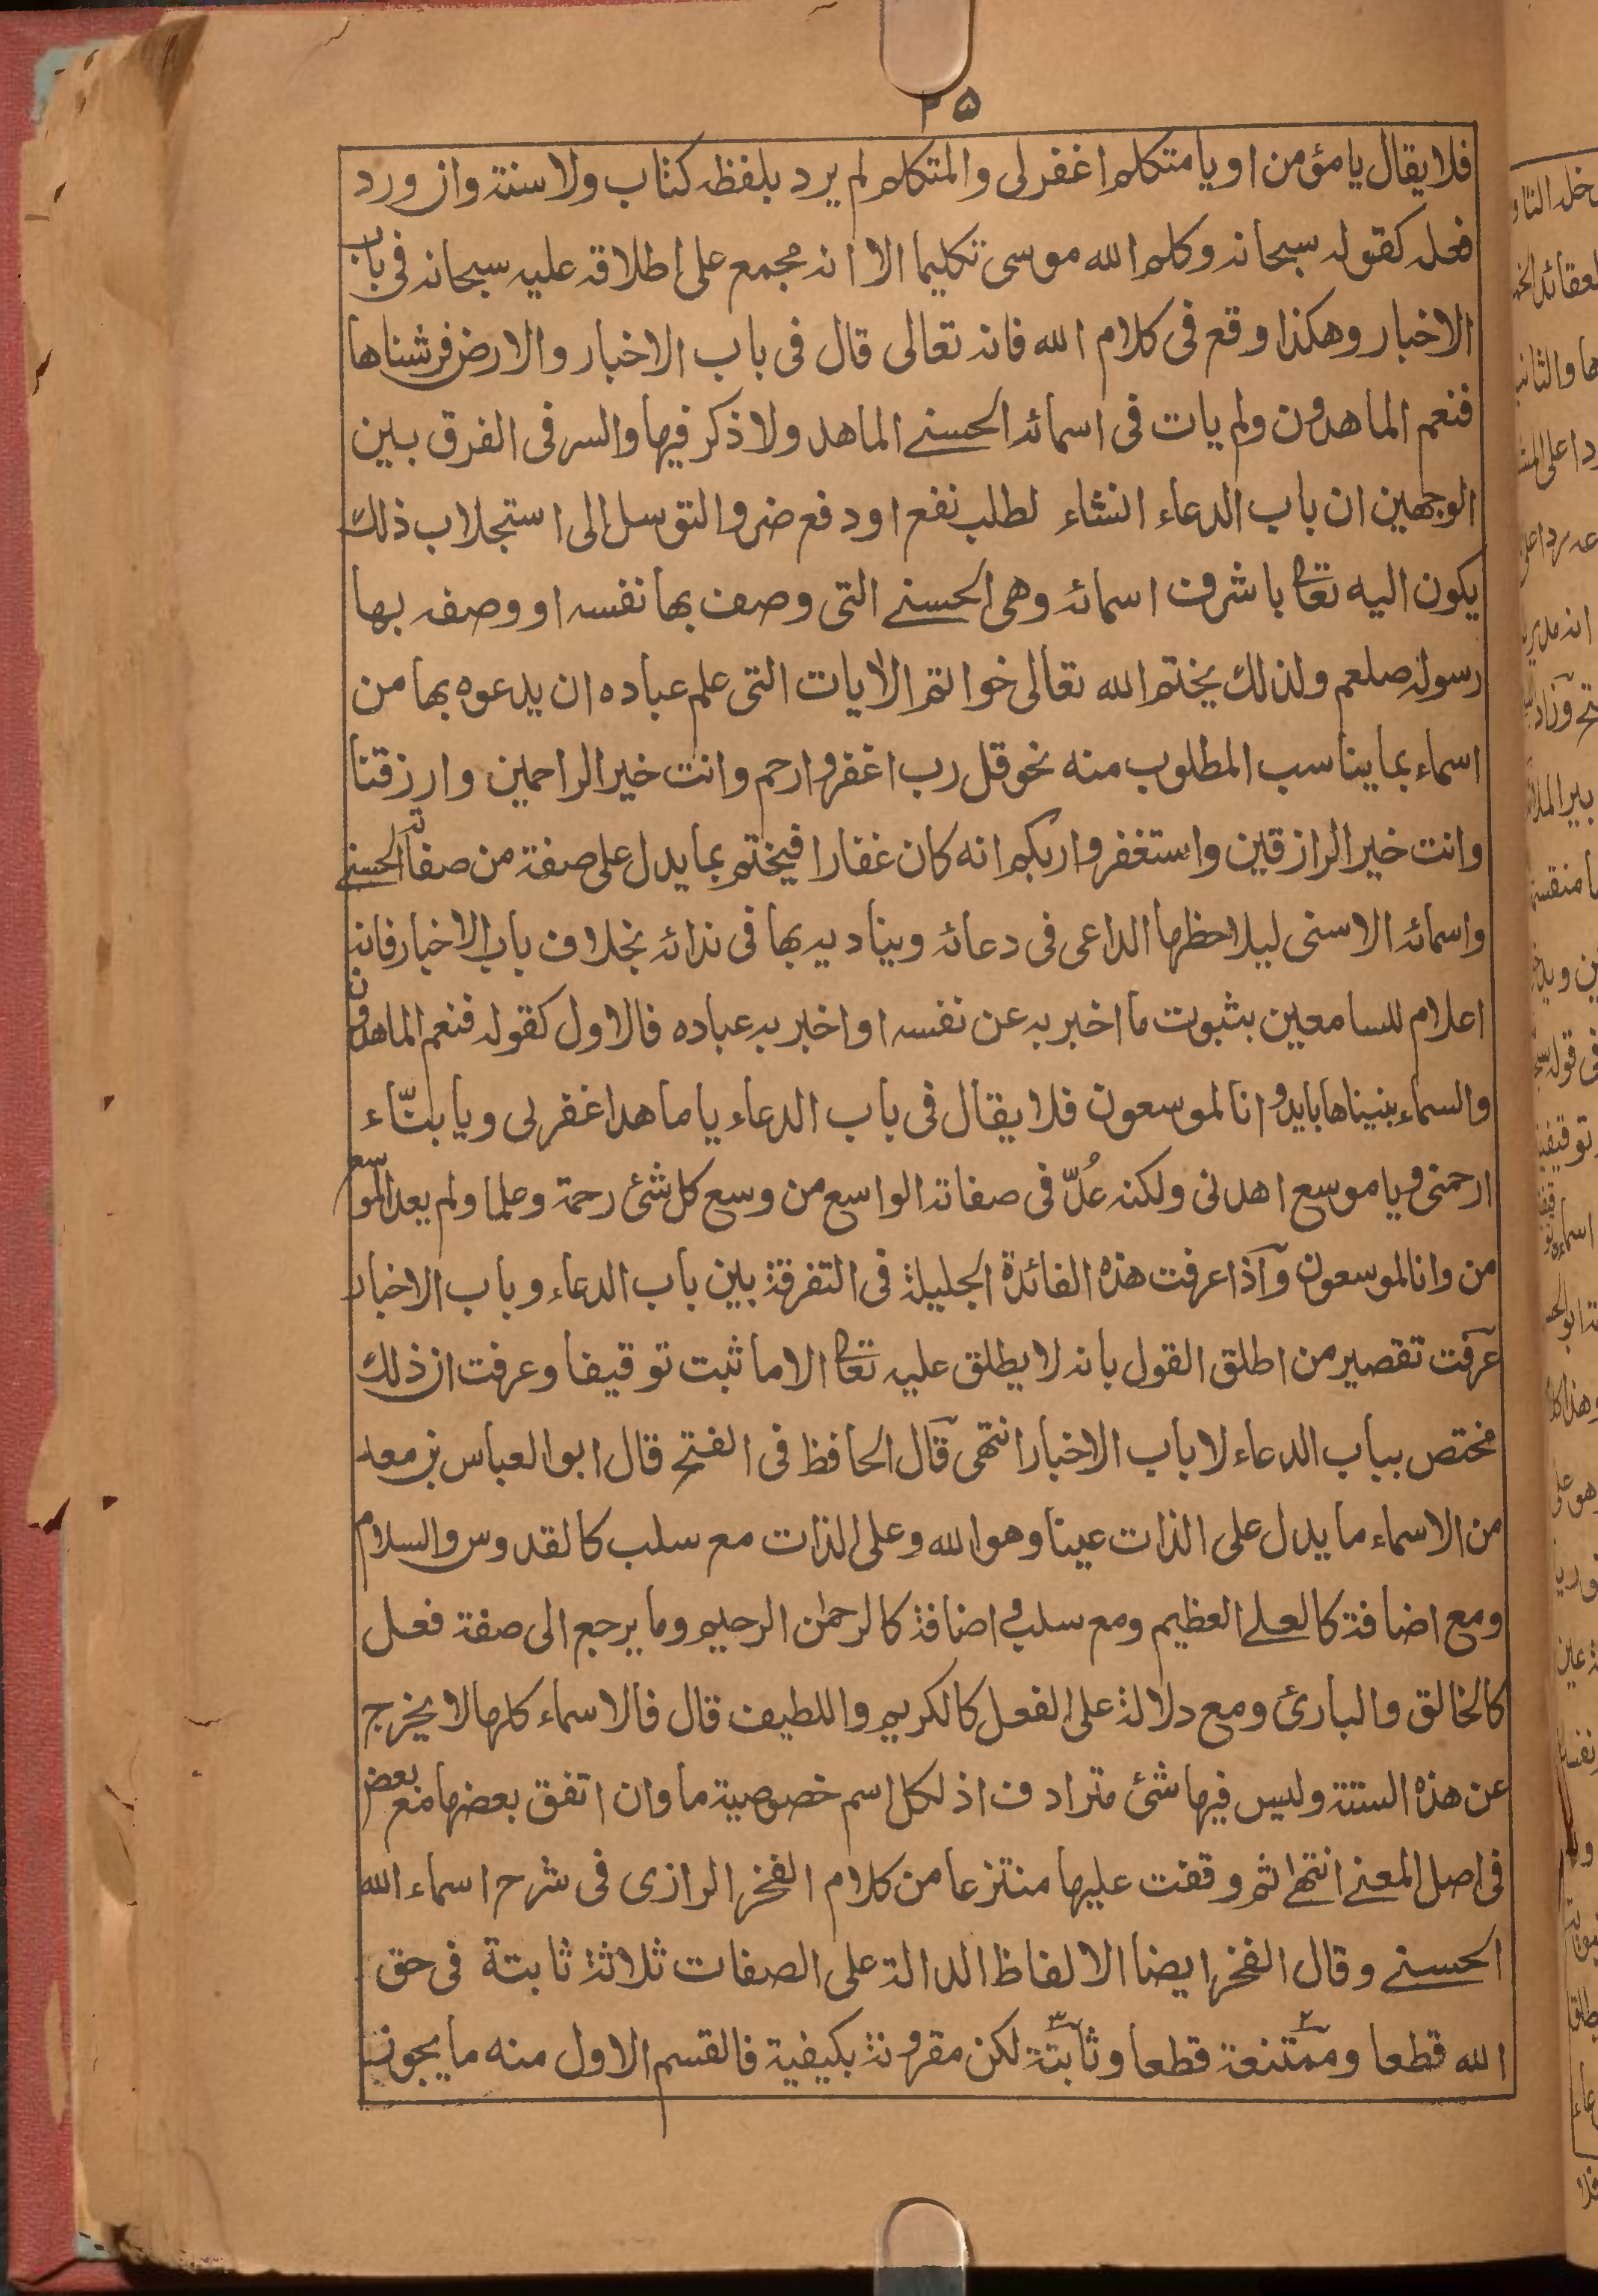 ٢٥
فلا يقال يا مؤمن او يا متكلم اغفر لى والمتكلم لم يرد بلفظه كتاب ولا سنة وان ورد
فعله كقوله سبحانه وكلم الله موسى تكليما الا انه مجمع على اطلاقه عليه سبحانه فى باب
الاخبار وهكذا وقع فى كلام الله فانه تعالى قال فى باب الاخبار والارض فرشناها
فنعم الماهدون ولم يات فى اسمائه الحسنے الماهد ولا ذكر فيها والسر فى الفرق بين
الوجهين ان باب الدعاء انشاء لطلب نفع او دفع ضر والتوسل الى استجلاب ذلك
يكون اليه تعالى باشرف اسمائه وهى الحسنے التى وصف بها نفسه او وصفه بها
رسوله صلعم ولذلك يختم الله تعالى خواتم الايات التى علم عباده ان يدعوه بها من
اسماء بما يناسب المطلوب منه نحو قل رب اغفر وارحم وانت خير الراحمين وارزقنا
وانت خير الرازقين واستغفروا ربكم انه كان غفارا فيختم بما يدل على صفة من صفاته الحسنے
واسمائه الاسنى ليلاحظها الداعى فى دعائه ويناديه بها فى ندائه بخلاف باب الاخبار فانه
اعلام للسامعين بثبوت ما اخبر به عن نفسه او اخبر به عباده فالاول كقوله فنعم الماهدون
والسماء بنيناها بايد وانا لموسعون فلا يقال فى باب الدعاء يا ماهد اغفر لى ويا بنّاء
ارحمنى ويا موسع اهدنى ولكنه عُدّ فى صفاته الواسع من وسع كل شئ رحمة وعلما ولم يعد الموسع
من وانا لموسعون وآذا عرفت هذه الفائدة الجليلة فى التفرقة بين باب الدعاء وباب الاخبار
عرفت تقصير من اطلق القول بانه لا يطلق عليه تعالى الا ما ثبت توقيفا وعرفت ان ذلك
مختص بباب الدعاء لا باب الاخبار انتهى قال الحافظ فى الفتح قال ابو العباس بن معد
من الاسماء ما يدل على الذات عينا وهو الله وعلى الذات مع سلب كالقدوس والسلام
ومع اضافة كالعلے العظيم ومع سلب واضافة كالرحمٰن الرحيم وما يرجع الى صفة فعل
كالخالق والبارئ ومع دلالة على الفعل كالكريم واللطيف قال فالاسماء كلها لا يخرج
عن هذه الستة وليس فيها شئ مترادف اذ لكل اسم خصوصية ما وان اتفق بعضها مع بعض
فى اصل المعنے انتهے ثم وقفت عليها منتزعا من كلام الفخر الرازى فى شرح اسماء الله
الحسنے وقال الفخر ايضا الالفاظ الدالة على الصفات ثلاثة ثابتة فى حق
الله قطعا وممتنعة٢ قطعا وثابتة٣ لكن مقرونة بكيفية فالقسم الاول منه ما يجوز